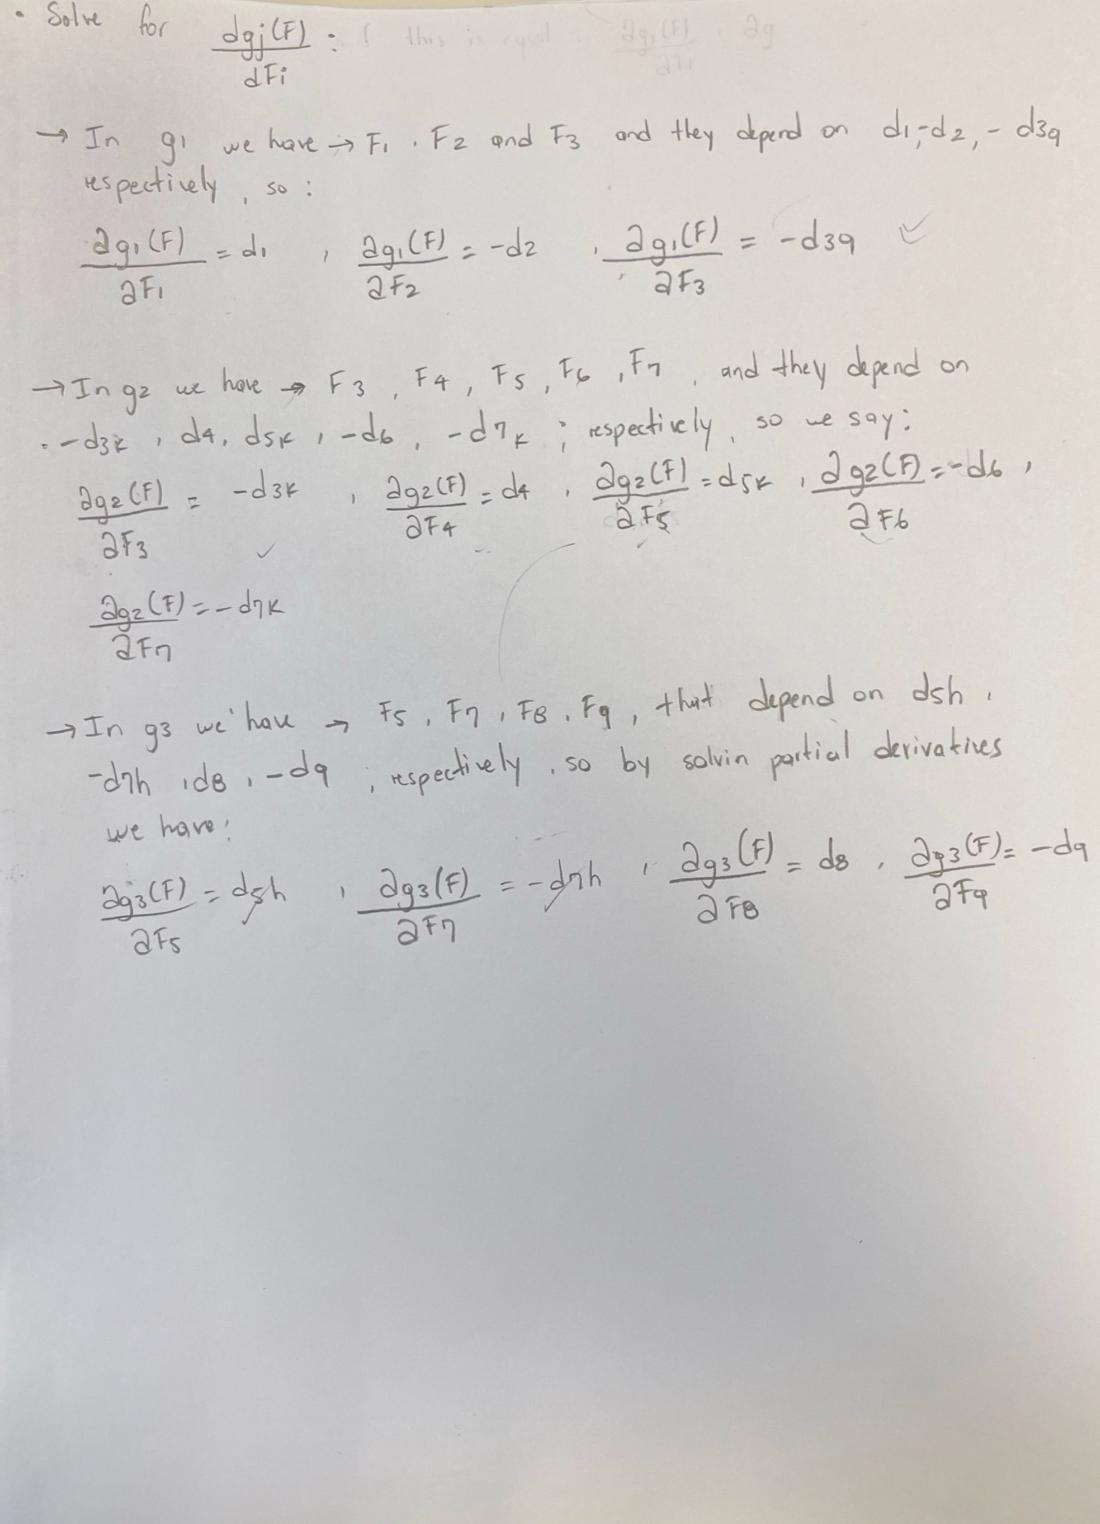 • Solve for dgj(F)/dFi :
→ In g1 we have → F1, F2 and F3 and they depend on d1, -d2, - d3q
respectively, so :
∂g1(F)/∂F1 = d1 , ∂g1(F)/∂F2 = -d2 , ∂g1(F)/∂F3 = -d3q
→ In g2 we have → F3, F4, F5, F6, F7, and they depend on
-d3k, d4, d5k, -d6, -d7k ; respectively, so we say:
∂g2(F)/∂F3 = -d3k , ∂g2(F)/∂F4 = d4 , ∂g2(F)/∂F5 = d5k , ∂g2(F)/∂F6 = -d6 ,
∂g2(F)/∂F7 = -d7k
→ In g3 we have → F5, F7, F8, F9, that depend on d5h,
-d7h, d8, -d9 ; respectively, so by solvin partial derivatives
we have:
∂g3(F)/∂F5 = d5h , ∂g3(F)/∂F7 = -d7h , ∂g3(F)/∂F8 = d8 , ∂g3(F)/∂F9 = -d9